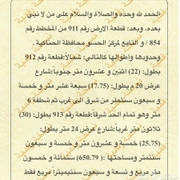 الحمد لله وحده والصلاة والسلام على من لا نبي
بعده، وبعد: قطعة الارض رقم 911 من المخطط رقم
854 / و التابع لمركز الحسو محافظة الحناكية .
وحدودها وأطوالها كالتالي: شمالاً:قطعة رقم 912
بطول: (22) اثنين و عشرون متر جنوباً:شارع
عرض 20 م بطول: (17.75) سبعة عشر متر و خمسة
و سبعون سنتمتر من شرق الى غرب ثم شطفة 6
متر وهو تمام الحد شرقاً:قطعة رقم 913 بطول: (30)
ثلاثون متر غرباً:شارع عرض 24 متر بطول:
(25.75) خمسة و عشرون متر و خمسة و سبعون
سنتمتر ومساحتها :( 650.79) ستمائة و خمسون
متر مربع و تسعة و سبعون سنتيمترا مربع فقط